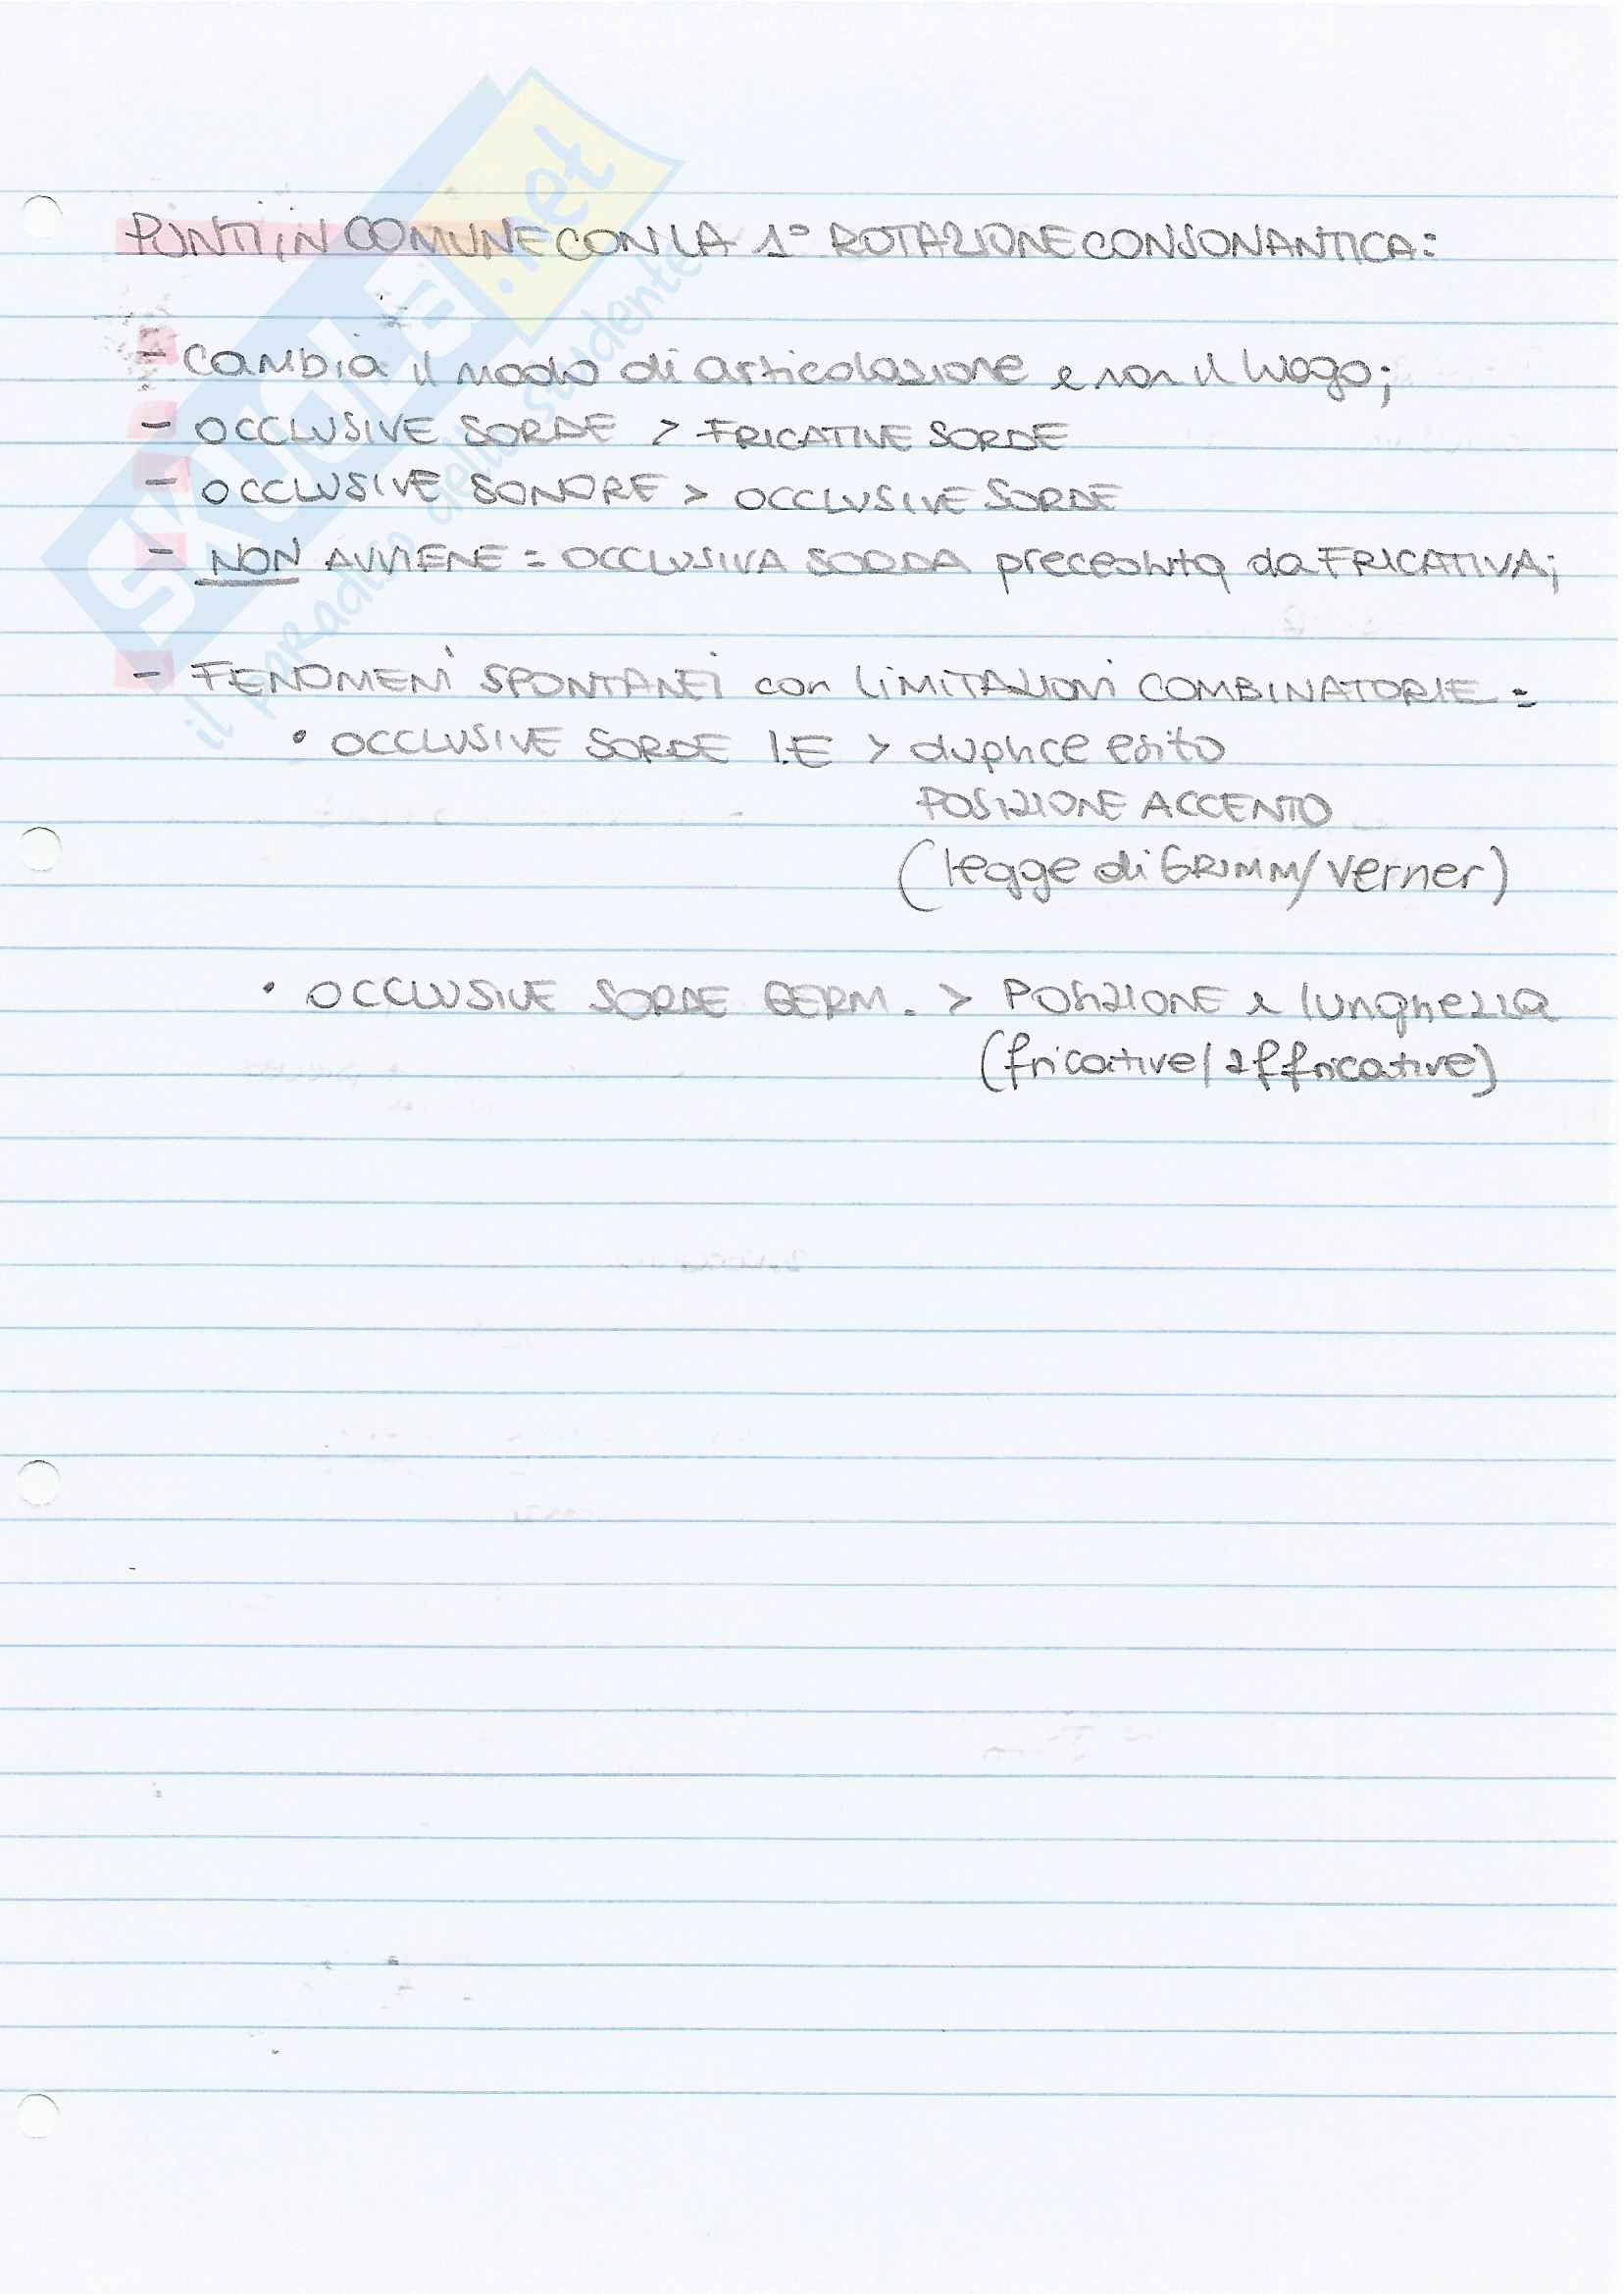 PUNTI IN COMUNE CON LA 1° ROTAZIONE CONSONANTICA:
- Cambia il modo di articolazione e non il luogo;
- OCCLUSIVE SORDE > FRICATIVE SORDE
- OCCLUSIVE SONORE > OCCLUSIVE SORDE
- NON AVVIENE = OCCLUSIVA SORDA preceduta da FRICATIVA;
- FENOMENI SPONTANEI con LIMITAZIONI COMBINATORIE =
• OCCLUSIVE SORDE I.E > duplice esito
POSIZIONE ACCENTO
(legge di GRIMM/Verner)
• OCCLUSIVE SORDE GERM. > POSIZIONE e lunghezza
(fricative/affricative)
SKUOLA.net
il paradiso dello studente